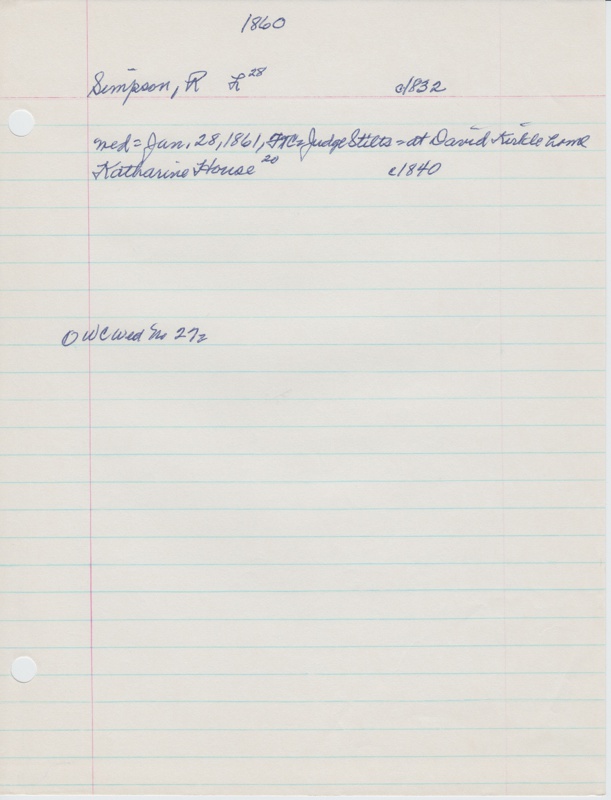 1860
Simpson, R L 28 c1832
wed = Jan. 28, 1861, = Judge Stilts = at David Kirkle home
Katharine House 20 c1840
O WC Wed No 272